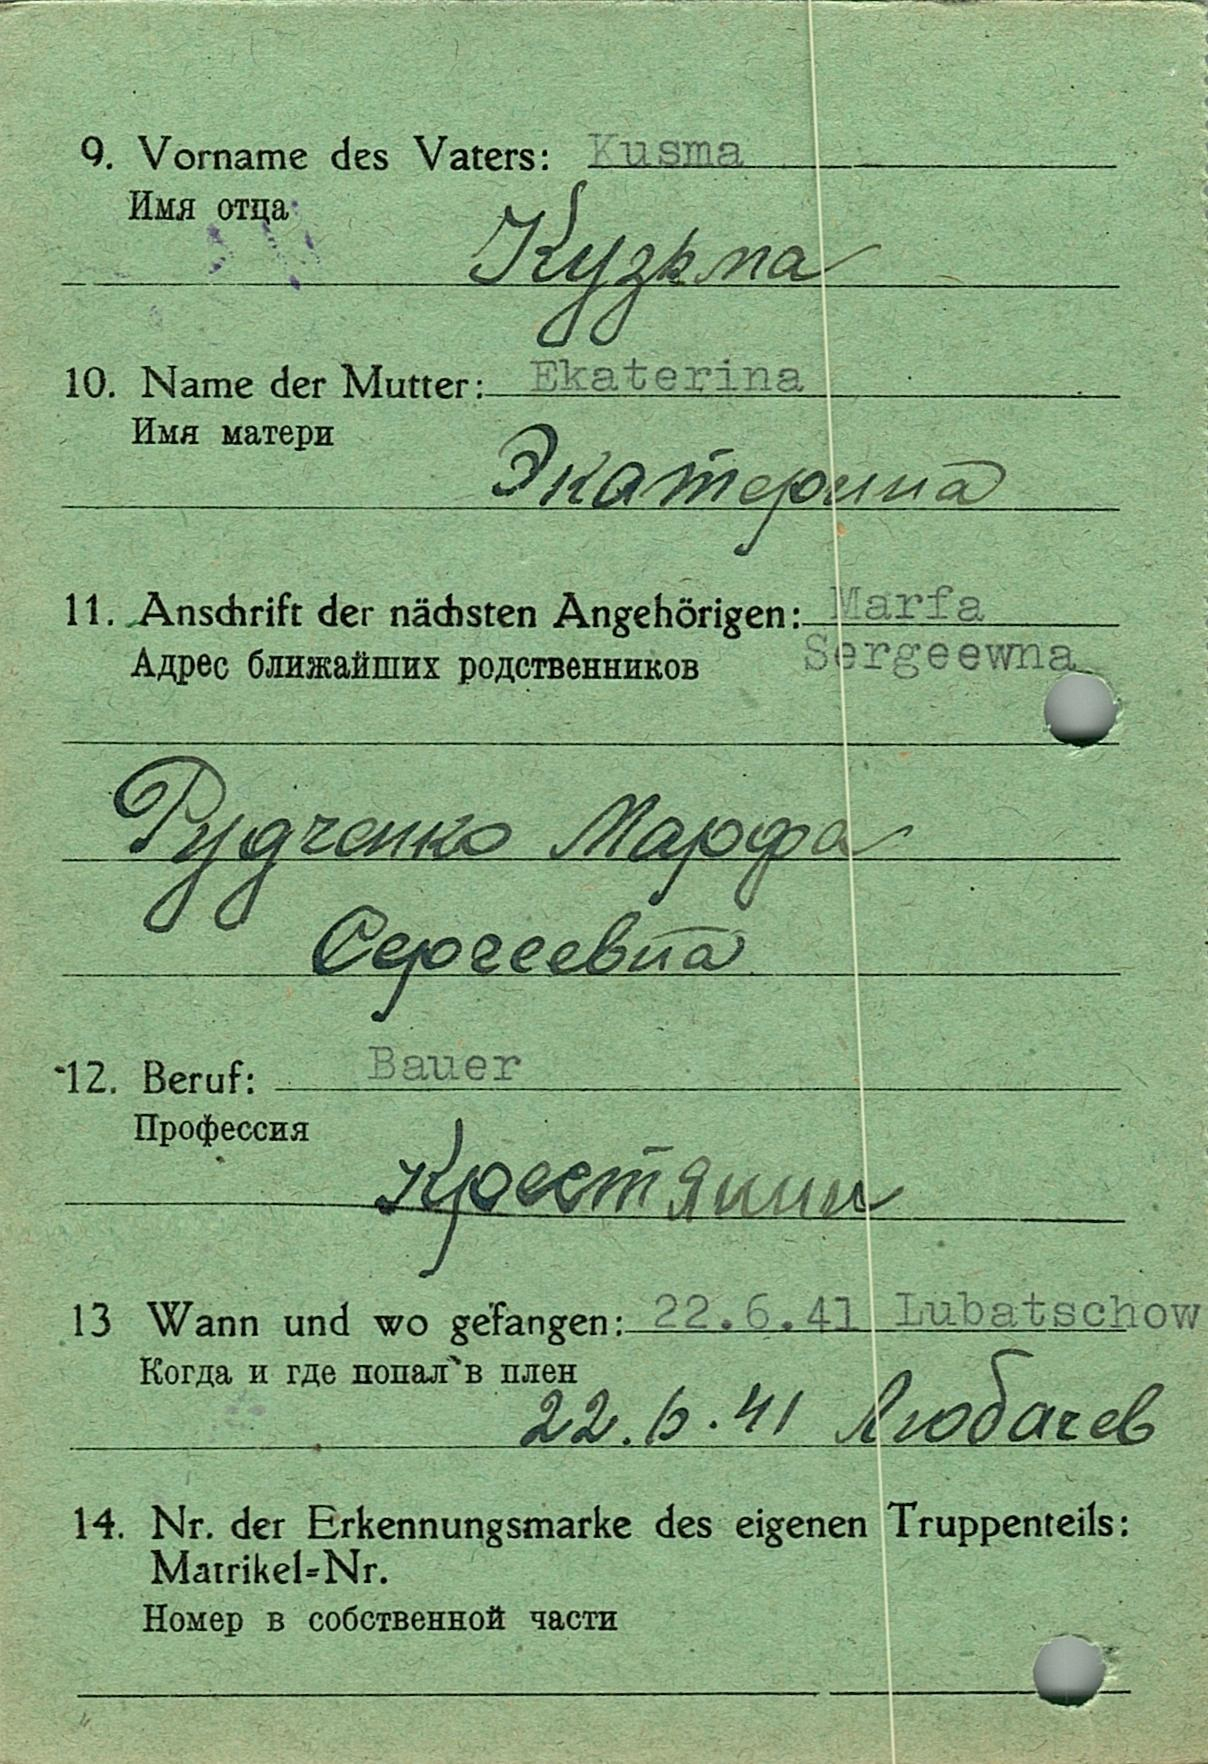 9. Vorname des Vaters: Kusma
Имя отца
Кузьма
10. Name der Mutter: Ekaterina
Имя матери
Экатерина
11. Anschrift der nächsten Angehörigen: Marfa
Адрес ближайших родственников Sergeewna
Рудченко Марфа
Сергеевна
12. Beruf: Bauer
Профессия
Крестянин
13 Wann und wo gefangen: 22.6.41 Lubatschow
Когда и где попал в плен
22.6.41 Любачев
14. Nr. der Erkennungsmarke des eigenen Truppenteils:
Matrikel=Nr.
Номер в собственной части